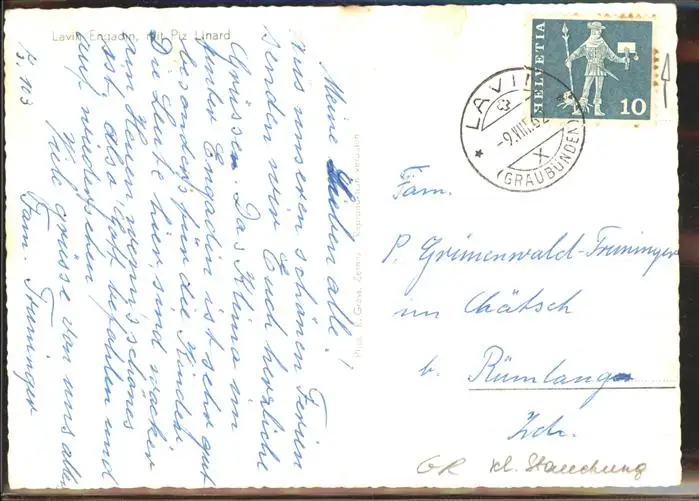 Lavin Engadin, mit Piz Linard
Meine Lieben alle!
Aus unseren schönen Ferien
senden wir Euch herzliche
Grüssen. Das Klima im
unter Engadin ist sehr gut
besonders für die Kinder
Die Leute hier, sind wacker
am Heuen, wenn's schönes
ist, also, Gott befohlen und
auf wiedersehen
Viele grüsse von uns allen
Fam. Truninger
Phot. E. Gross,
HELVETIA
10
LAVIN
-9.VIII.
X
(GRAUBÜNDEN)
Fam.
P. Grünenwald-Truninger
im Chätsch
b. Rümlang
Zch.
GR kl. Stauchung